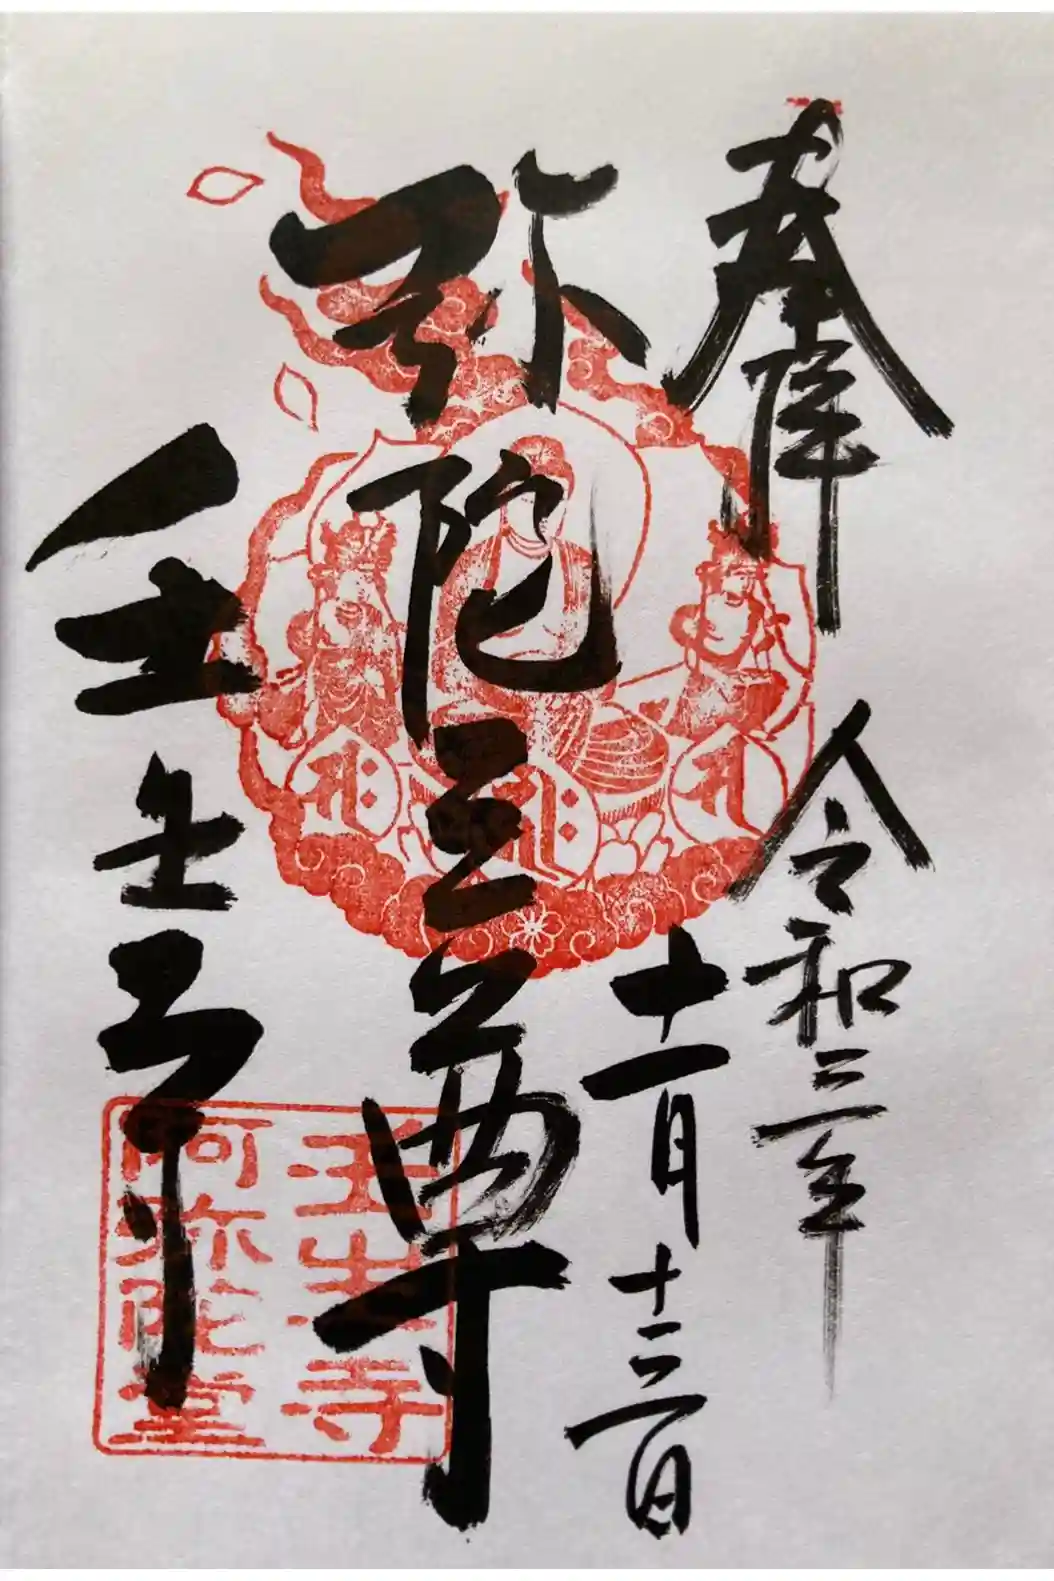 奉拝
令和三年
十一月十三日
弥陀三尊
壬生寺
壬生寺
阿弥陀堂